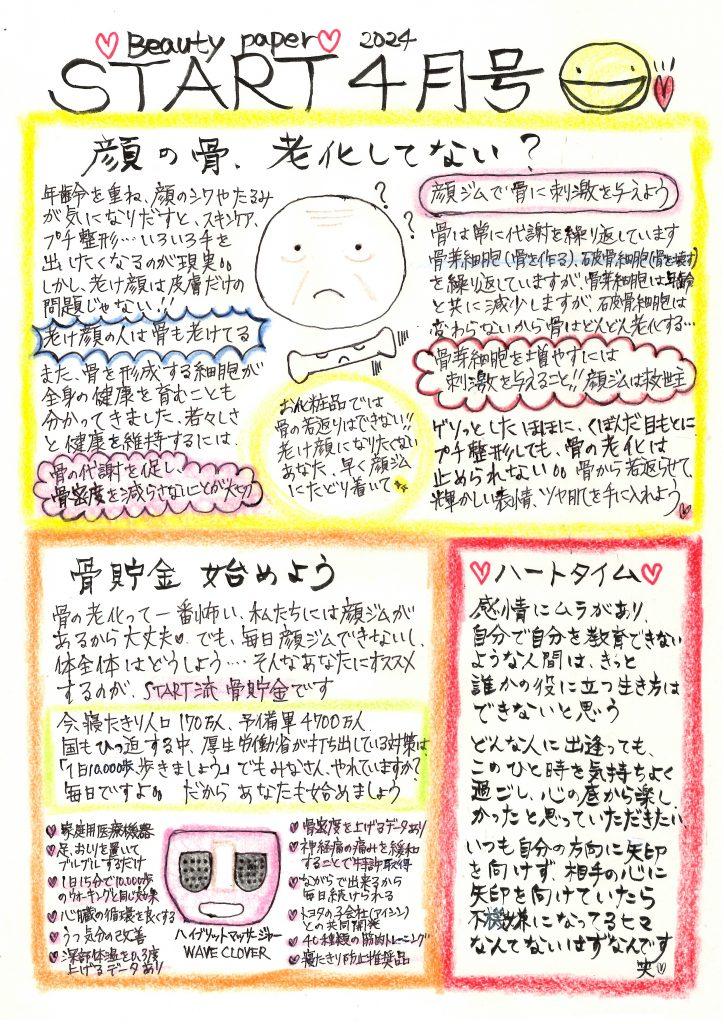 Beauty paper 2024
START 4月号
顔の骨、老化してない?
年齢を重ね、顔のシワやたるみ
が気になりだすと、スキンケア、
プチ整形…いろいろ手を
出したくなるのが現実。。
しかし、老け顔は皮膚だけの
問題じゃない!!
老け顔の人は骨も老けてる
また、骨を形成する細胞が
全身の健康を育むことも
分かってきました、若々しさ
と健康を維持するには
骨の代謝を促し、
骨密度を減らさないことが大切
? ?
お化粧品では
骨の若返りはできない!!
老け顔になりたくない
あなた、早く顔ジム
にたどり着いて
顔ジムで骨に刺激を与えよう
骨は常に代謝を繰り返しています
骨芽細胞(骨を作る)、破骨細胞(骨を壊す)
を繰り返していますが、骨芽細胞は年齢
と共に減少しますが、破骨細胞は
変わらないから骨はどんどん老化する…
骨芽細胞を増やすには
刺激を与えること!!顔ジムは救世主
ゲソッとしたほほに、くぼんだ目もとに
プチ整形しても、骨の老化は
止められない。。骨から若返らせて、
輝かしい表情、ツヤ肌を手に入れよう
骨貯金 始めよう
骨の老化って一番怖い、私たちには顔ジムが
あるから大丈夫。でも、毎日顔ジムできないし、
体全体はどうしよう…そんなあなたにオススメ
するのが、START流 骨貯金です
今、寝たきり人口170万人、予備軍4700万人
国もひっ迫する中、厚生労働省が打ち出している対策は、
「1日10,000歩、歩きましょう」でもみなさん、やれていますか?
毎日ですよ。。 だから あなたも始めましょう
家庭用医療機器
足、おしりを置いて
ブルブルするだけ
1日15分で10,000歩
のウォーキングと同じ効果
心臓の循環を良くする
うつ気分の改善
深部体温を0.3度
上げるデータあり
ハイブリットマッサージャー
WAVE CLOVER
骨密度を上げるデータあり
神経痛の痛みを緩和
することで特許取得
ながらで出来るから
毎日続けられる
トヨタの子会社(アイシン)
との共同開発
40種類の筋肉トレーニング
寝たきり防止推奨品
ハートタイム
感情にムラがあり、
自分で自分を教育できない
ような人間は、きっと
誰かの役に立つ生き方は
できないと思う
どんな人に出逢っても、
このひと時を気持ちよく
過ごし、心の底から楽し
かったと思っていただきたい
いつも自分の方向に矢印
を向けず、相手の心に
矢印を向けていたら
不機嫌になってるヒマ
なんてないはずなんです
笑